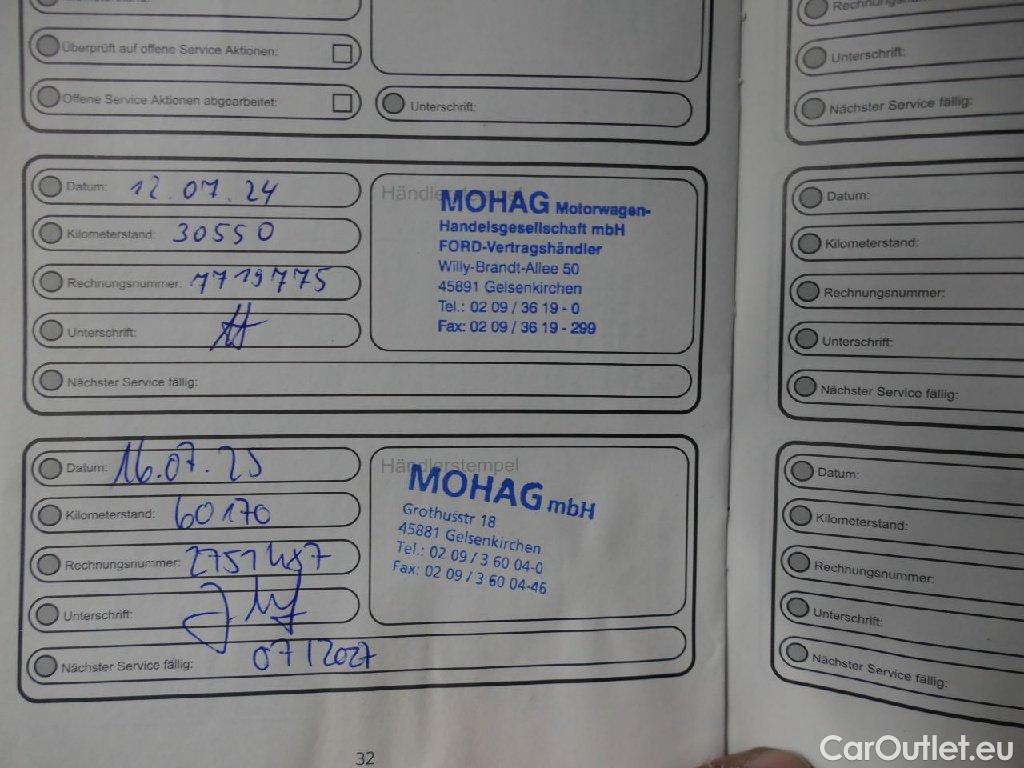 Überprüft auf offene Service Aktionen:
Offene Service Aktionen abgearbeitet:
Unterschrift:
Datum: 12.07.24
Kilometerstand: 30550
Rechnungsnummer: 7719775
Unterschrift:
Nächster Service fällig:
Händlerstempel
MOHAG Motorwagen-
Handelsgesellschaft mbH
FORD-Vertragshändler
Willy-Brandt-Allee 50
45891 Gelsenkirchen
Tel.: 02 09 / 36 19 - 0
Fax: 02 09 / 36 19 - 299
Datum: 16.07.25
Kilometerstand: 60170
Rechnungsnummer:
Unterschrift:
Nächster Service fällig: 07/2027
Händlerstempel
MOHAG mbH
Grothusstr 18
45881 Gelsenkirchen
Tel.: 02 09 / 3 60 04-0
Fax: 02 09 / 3 60 04-46
32
Unterschrift:
Nächster Service fällig:
Datum:
Kilometerstand:
Rechnungsnummer:
Unterschrift:
Nächster Service fällig:
Datum:
Kilometerstand:
Rechnungsnummer:
Unterschrift:
Nächster Service fällig:
CarOutlet.eu